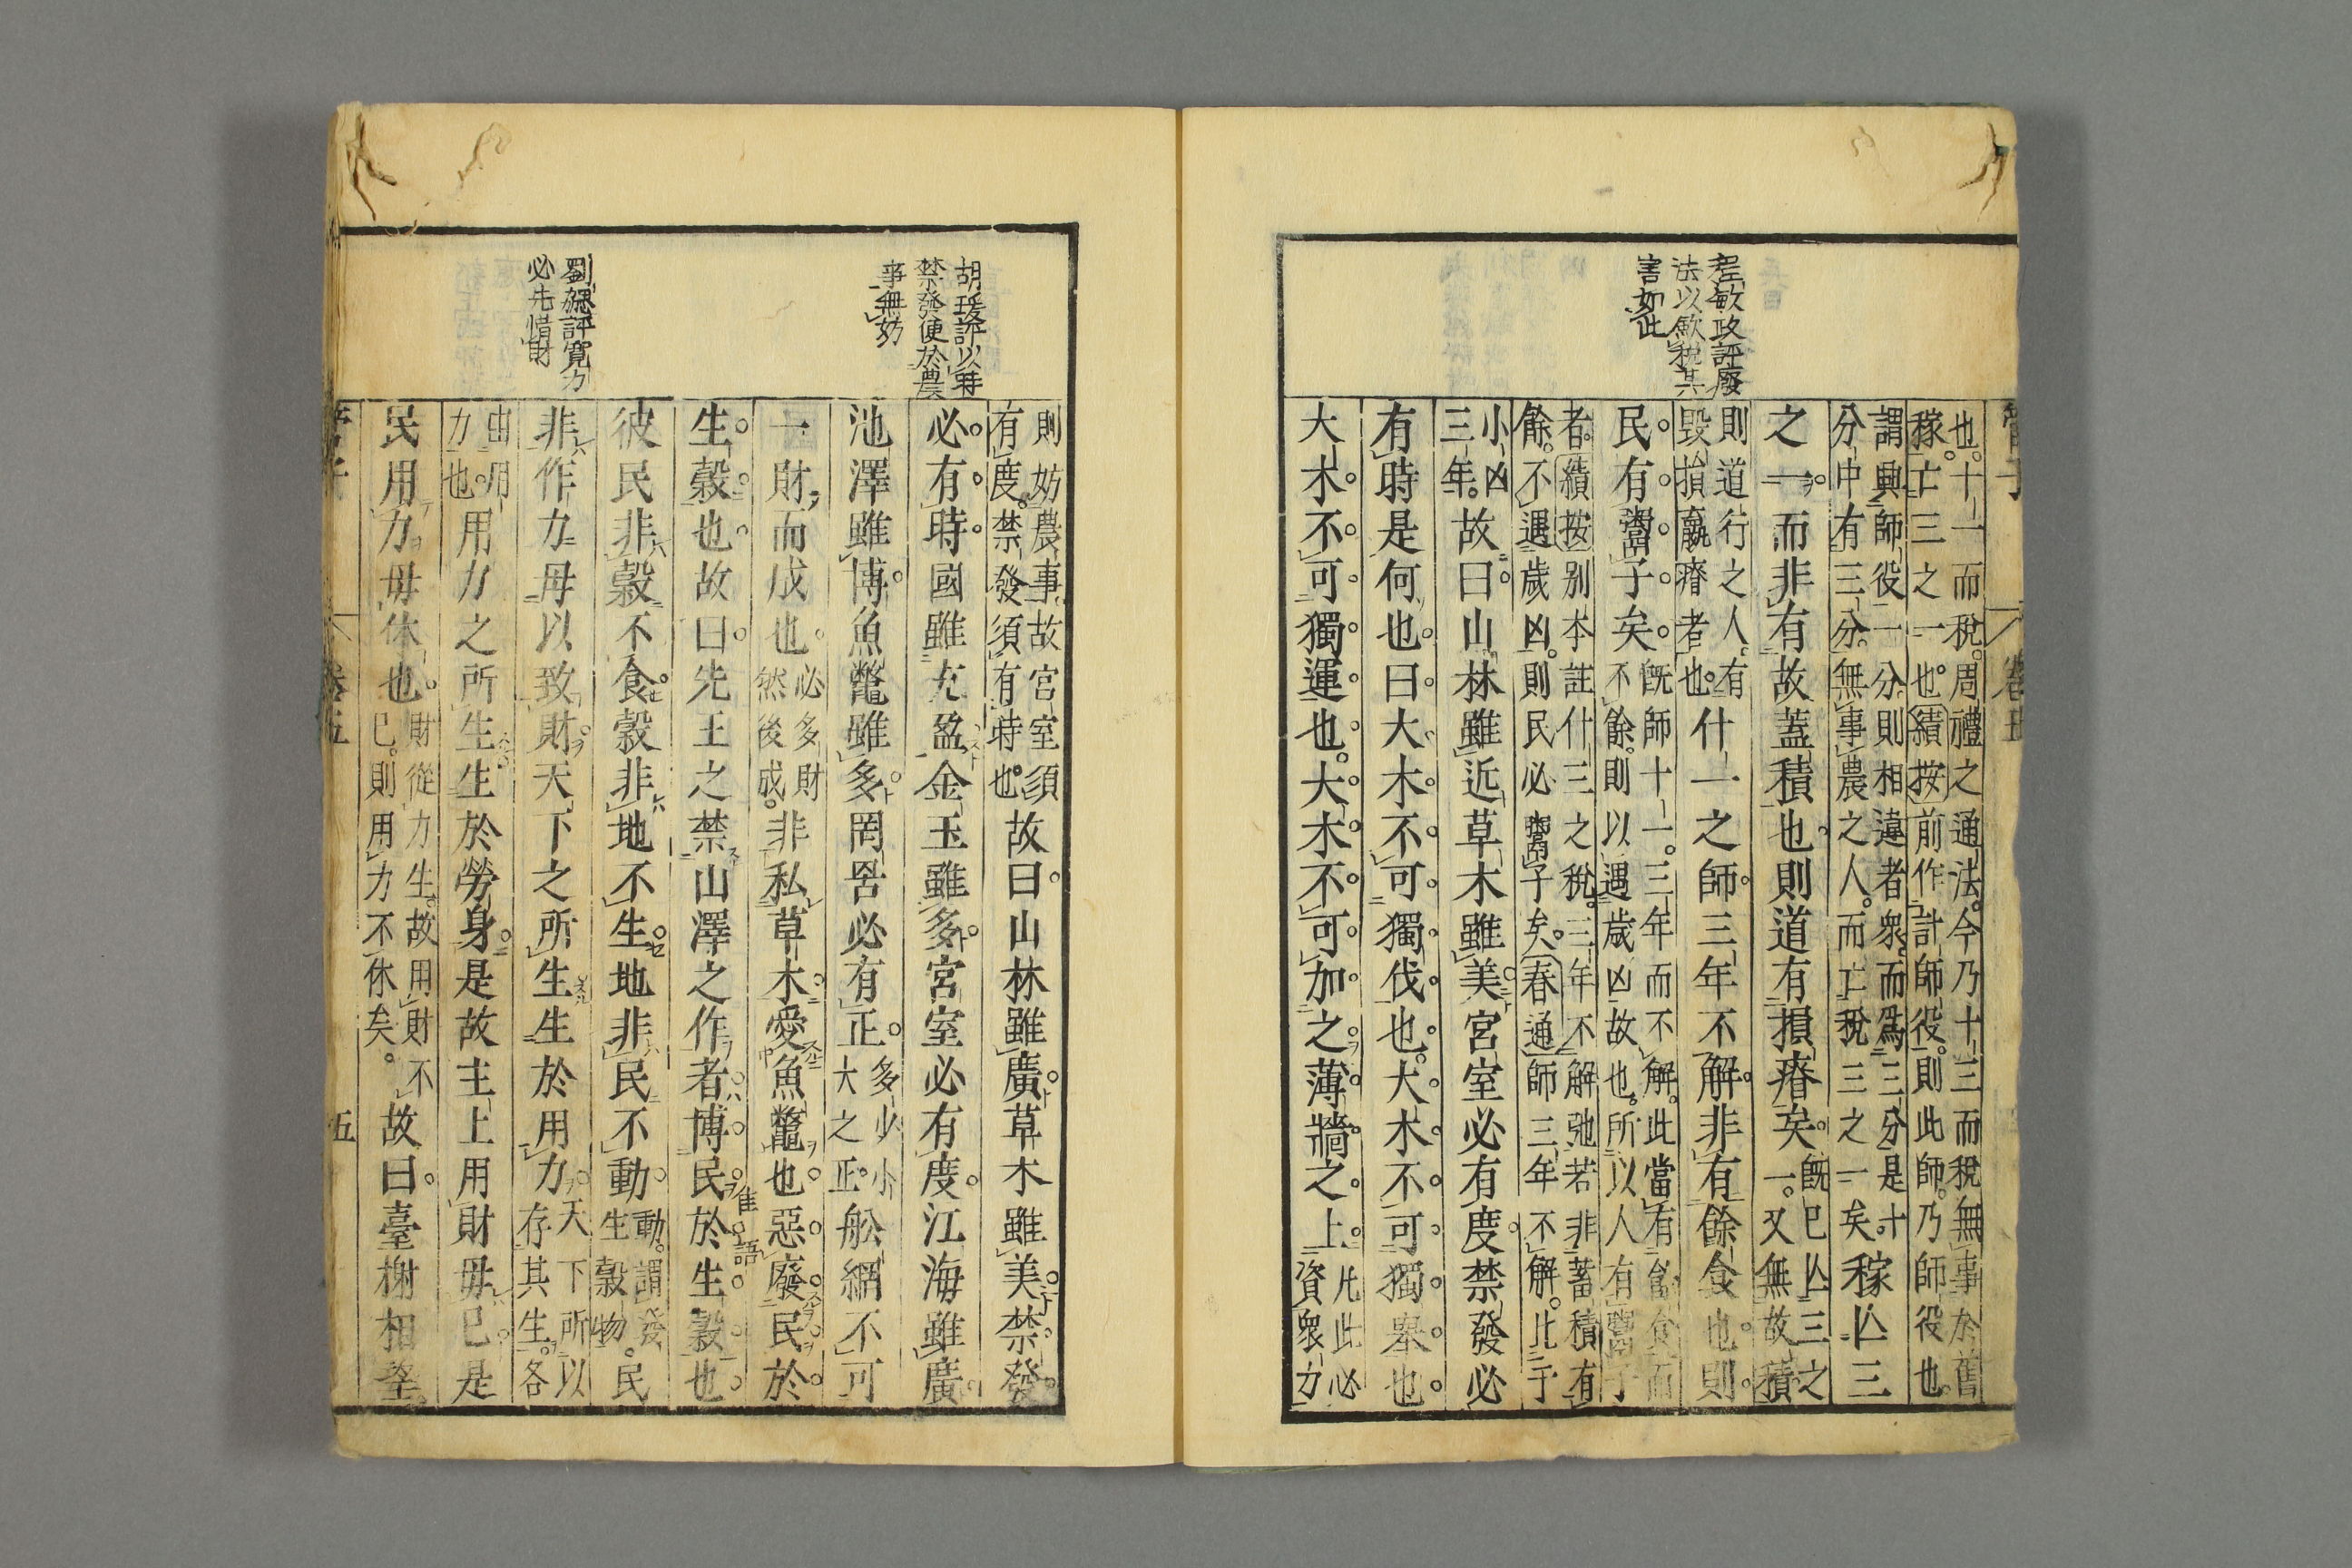 程敏政評廢
法以歛稅其
害如此
管子
卷五
也。十一而稅。周禮之通法。今乃十三而稅無事於舊
稼。亡三之一也。績按前作計師役。則此師。乃師役也。
謂興師役一分。則相違者衆。而爲三分是十
分中有三分。無事農之人。而亡稅三之一矣。稼亾三
之一。而非有故蓋積也則道有損瘠矣。旣已亾三之
一。又無故積
則道行之人。有
毀損羸瘠者也。什一之師。三年不解。非有餘食也。則
民有鬻子矣。旣師十一。三年而不解。此當有餘食而
不餘。則以遇歲凶故也。所以人有鬻子
者。績按别本註什三之稅。三年不解弛若非蓄積有
餘。不遇歲凶。則民必鬻子矣。春通師三年不解。比于
小凶
三年。故曰。山林雖近草木雖美宮室必有度。禁發必
有時是何也。曰。大木不可獨伐也。大木不可獨舉也。
大木不可獨運也。大木不可加之薄牆之上。凡此必
資衆力
胡瑗評以時
禁發便於農
事無妨
劉勰評寬力
必先惜財
則妨農事。故宮室須
有度。禁發須有時也。故曰。山林雖廣。草木雖美。禁發
必有時。國雖充盈。金玉雖多。宮室必有度。江海雖廣。
池澤雖博。魚鼈雖多。罔罟必有正。多少小
大之正。舩網不可
一財。而成也。必多財
然後成。非私草木。愛魚鼈也。惡廢民於
生穀也。故曰。先王之禁山澤之作者。博民於生穀也。
隹
語
彼民非穀不食。穀非地不生。地非民不動。動。謂發
生穀物。民
非作力毋以致財。天下之所生生於用力。天下所以
存其生。各
由用
力也。用力之所生生於勞身。是故主上用財毋已。是
民用力毋休也。財從力生。故用財不
已。則用力不休矣。故曰。臺榭相望。
管子
卷五
五